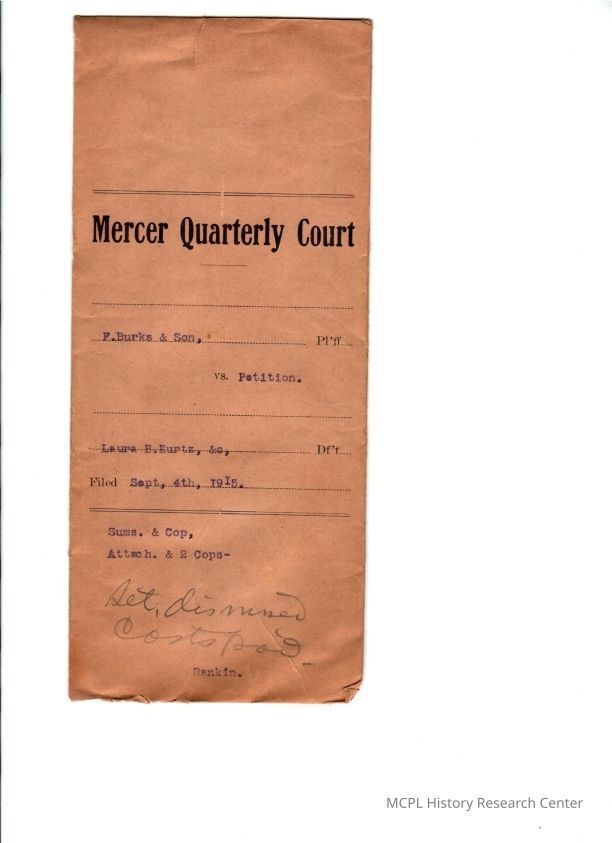 Mercer Quarterly Court
F.Burks & Son, Pl'ff.
vs. Petition.
Laura B.Kurtz, &c, Df't.
Filed Sept, 4th, 1915.
Sums. & Cop,
Attach. & 2 Cops-
Set, dismised
Costs paid.
Rankin.
MCPL History Research Center